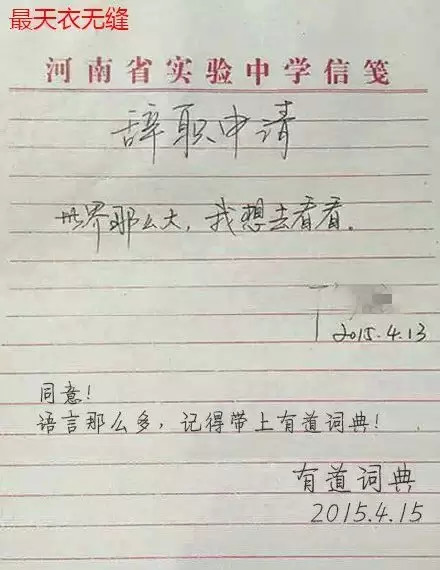 最天衣无缝
河南省实验中学信笺
辞职申请
世界那么大，我想去看看.
2015.4.13
同意！
语言那么多，记得带上有道词典！
有道词典
2015.4.15